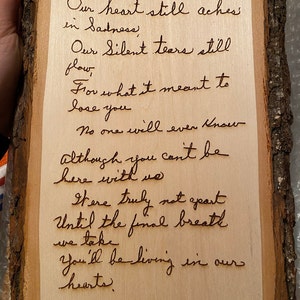 Our heart still aches
in Sadness,
Our Silent tears still
flow,
For what it meant to
lose you
No one will ever Know
Although you can't be
here with us
We're truly not apart
Until the final breath
we take
You'll be living in our
hearts.